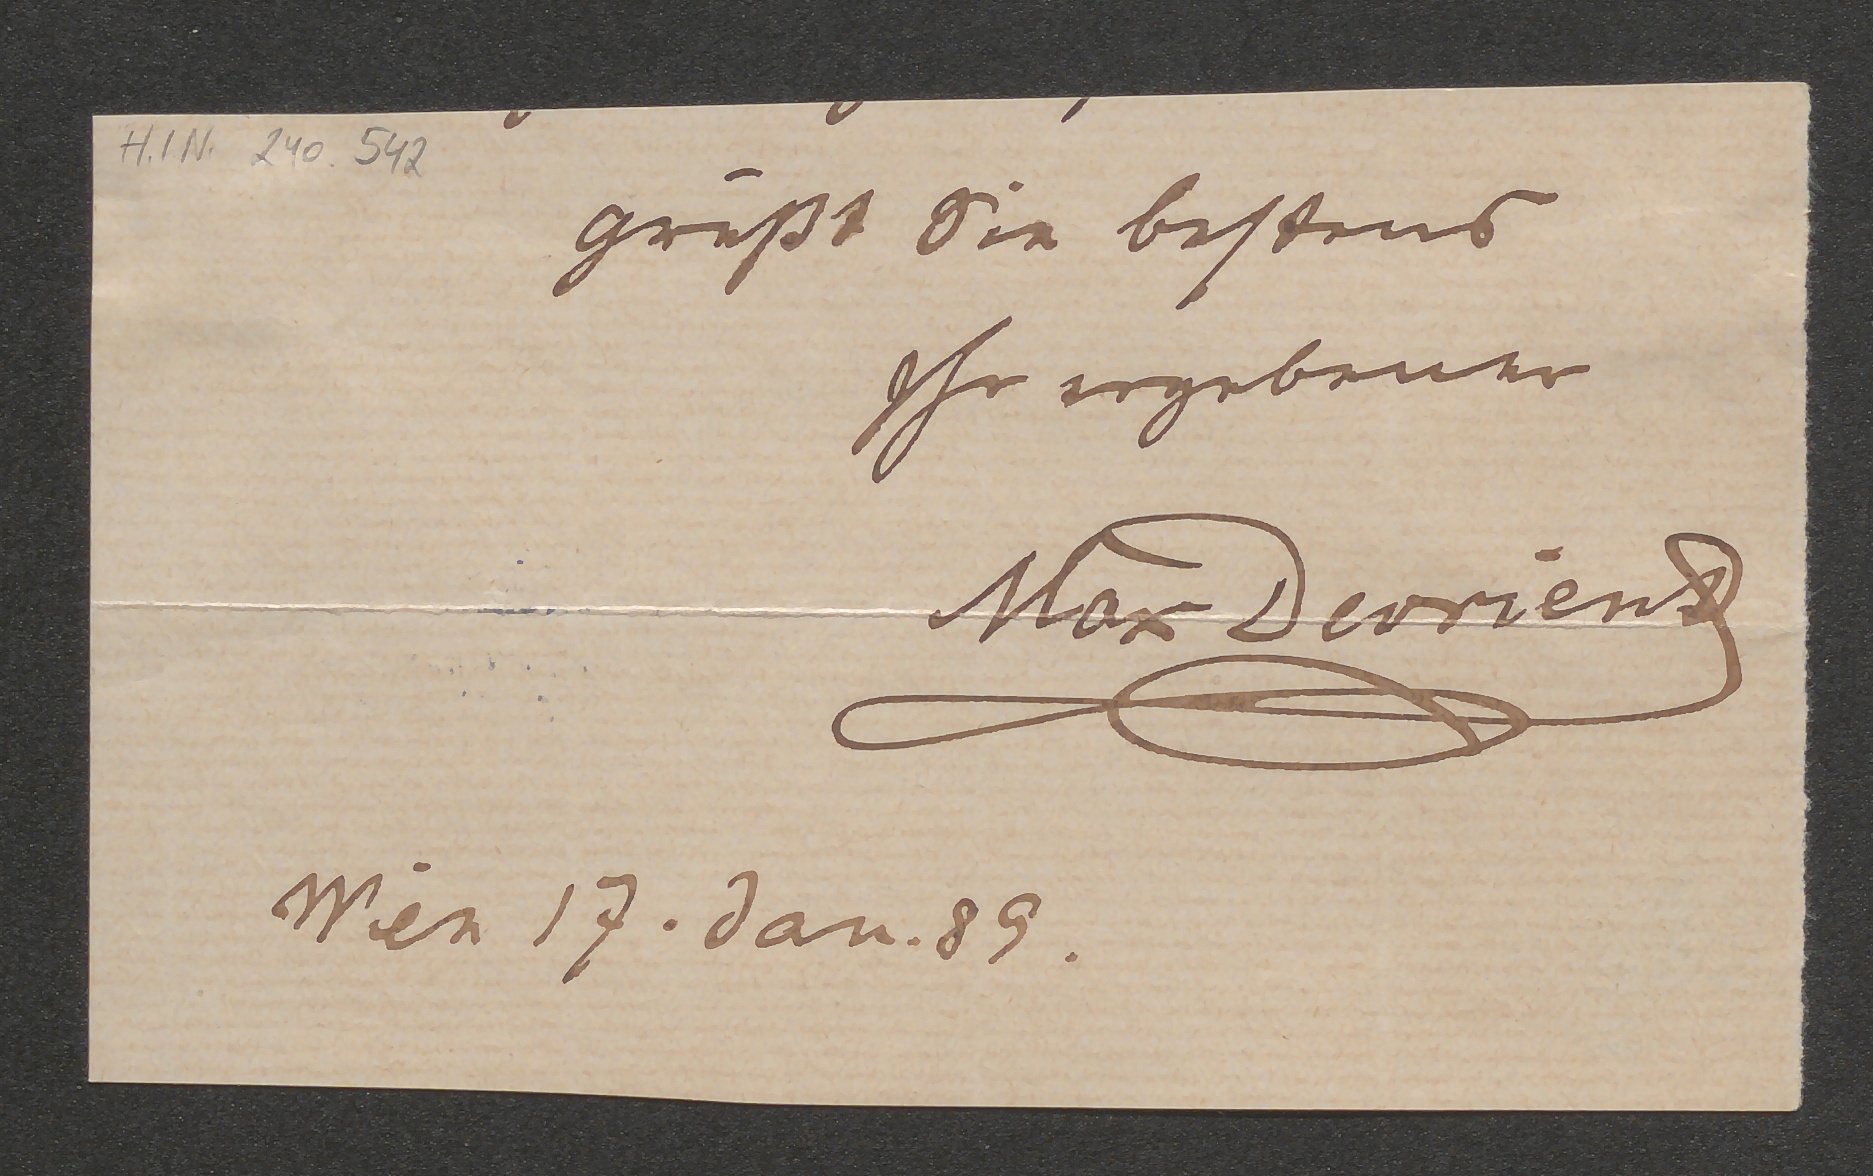 H.I.N. 240.542
grüßt Sie bestens
Ihr ergebener
Max Devrient
Wien 17. Jan. 89.